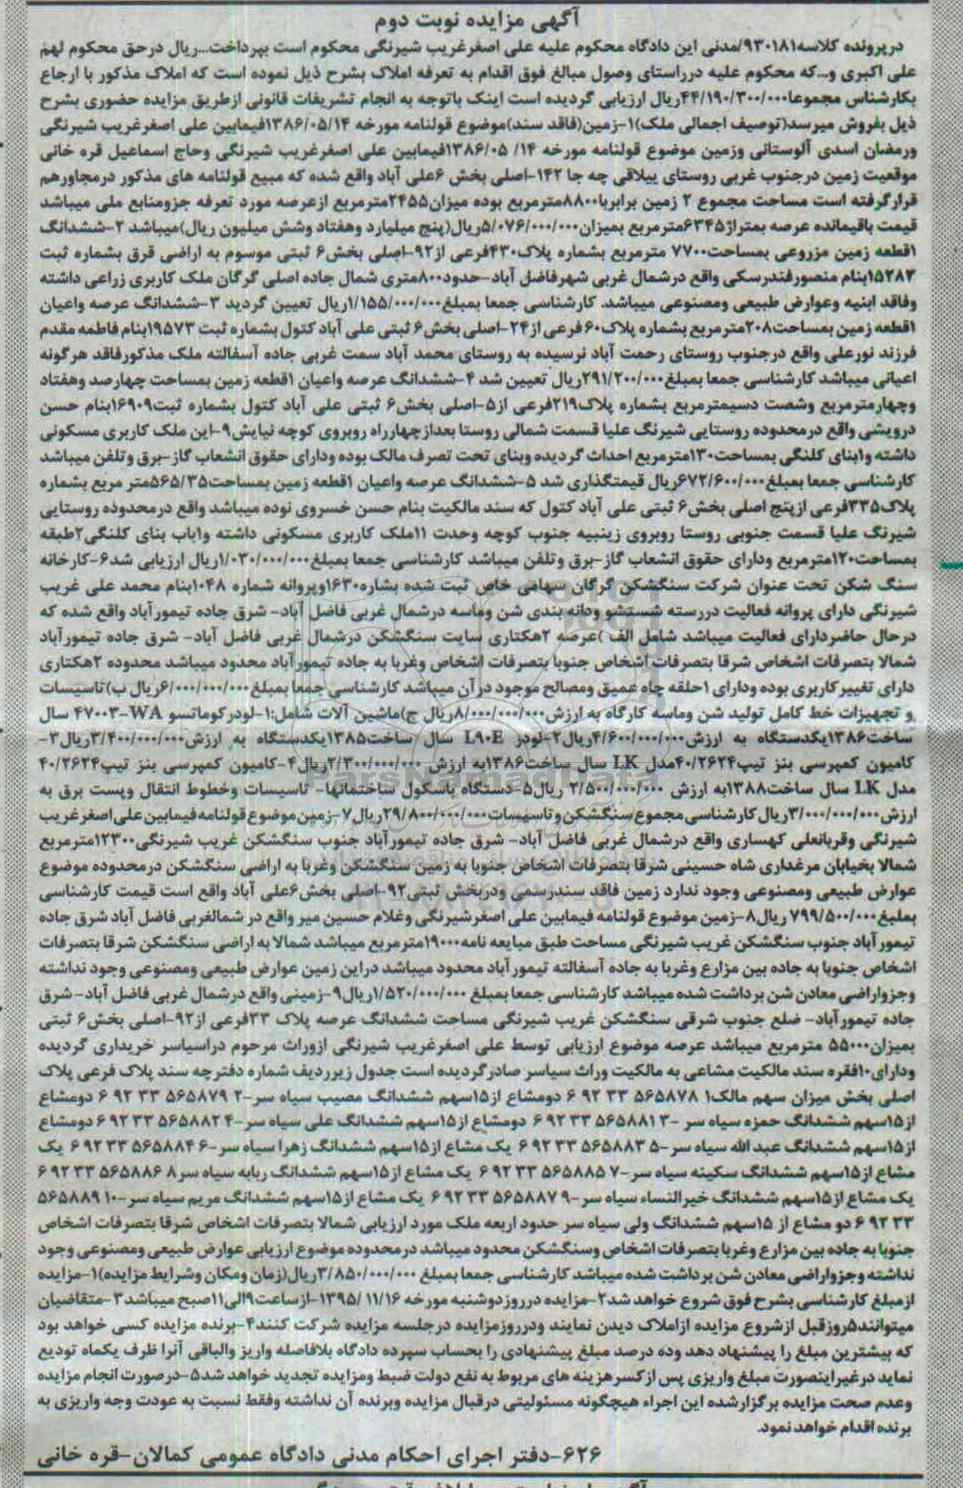 آگهی مزایده نوبت دوم
درپرونده کلاسه۹۳۰۱۸۱/مدنی این دادگاه محکوم علیه علی اصغرغریب شیرنگی محکوم است بپرداخت...ریال درحق محکوم لهم
علی اکبری و...که محکوم علیه درراستای وصول مبالغ فوق اقدام به تعرفه املاک بشرح ذیل نموده است که املاک مذکور با ارجاع
بکارشناس مجموعا۴۴/۱۹۰/۳۰۰/۰۰۰ریال ارزیابی گردیده است اینک باتوجه به انجام تشریفات قانونی ازطریق مزایده حضوری بشرح
ذیل بفروش میرسد(توصیف اجمالی ملک)۱-زمین(فاقد سند)موضوع قولنامه مورخه ۱۳۸۶/۰۵/۱۴فیمابین علی اصغرغریب شیرنگی
ورمضان اسدی آلوستانی وزمین موضوع قولنامه مورخه ۱۴/ ۱۳۸۶/۰۵فیمابین علی اصغرغریب شیرنگی وحاج اسماعیل قره خانی
موقعیت زمین درجنوب غربی روستای ییلاقی چه جا ۱۴۲-اصلی بخش ۶علی آباد واقع شده که مبیع قولنامه های مذکور درمجاورهم
قرارگرفته است مساحت مجموع ۲ زمین برابربا۸۸۰۰مترمربع بوده میزان۲۴۵۵مترمربع ازعرصه مورد تعرفه جزومنابع ملی میباشد
قیمت باقیمانده عرصه بمتراژ۶۳۴۵مترمربع بمیزان۵/۰۷۶/۰۰۰/۰۰۰ریال(پنج میلیارد وهفتاد وشش میلیون ریال)میباشد ۲-ششدانگ
۱قطعه زمین مزروعی بمساحت۷۷۰۰ مترمربع بشماره پلاک۴۳۰فرعی از۹۲-اصلی بخش۶ ثبتی موسوم به اراضی قرق بشماره ثبت
۱۵۲۸۳بنام منصورفندرسکی واقع درشمال غربی شهرفاضل آباد-حدود۸۰۰متری شمال جاده اصلی گرگان ملک کاربری زراعی داشته
وفاقد ابنیه وعوارض طبیعی ومصنوعی میباشد. کارشناسی جمعا بمبلغ۱/۱۵۵/۰۰۰/۰۰۰ریال تعیین گردید ۳-ششدانگ عرصه واعیان
۱قطعه زمین بمساحت۲۰۸مترمربع بشماره پلاک۶۰فرعی از۲۴-اصلی بخش۶ ثبتی علی آباد کتول بشماره ثبت ۱۹۵۷۳بنام فاطمه مقدم
فرزند نورعلی واقع درجنوب روستای رحمت آباد نرسیده به روستای محمد آباد سمت غربی جاده آسفالته ملک مذکورفاقد هرگونه
اعیانی میباشد کارشناسی جمعا بمبلغ۲۹۱/۲۰۰/۰۰۰ریال تعیین شد ۴-ششدانگ عرصه واعیان ۱قطعه زمین بمساحت چهارصد وهفتاد
وچهارمترمربع وشصت دسیمترمربع بشماره پلاک۲۱۹فرعی از۵-اصلی بخش۶ ثبتی علی آباد کتول بشماره ثبت۱۶۹۰۹بنام حسن
درویشی واقع درمحدوده روستایی شیرنگ علیا قسمت شمالی روستا بعدازچهارراه روبروی کوچه نیایش۹-این ملک کاربری مسکونی
داشته و۱بنای کلنگی بمساحت۱۳۰مترمربع احداث گردیده وبنای تحت تصرف مالک بوده ودارای حقوق انشعاب گاز-برق وتلفن میباشد
کارشناسی جمعا بمبلغ۶۷۲/۶۰۰/۰۰۰ریال قیمتگذاری شد ۵-ششدانگ عرصه واعیان ۱قطعه زمین بمساحت۵۶۵/۳۵متر مربع بشماره
پلاک۳۳۵فرعی ازپنج اصلی بخش۶ ثبتی علی آباد کتول که سند مالکیت بنام حسن خسروی نوده میباشد واقع درمحدوده روستایی
شیرنگ علیا قسمت جنوبی روستا روبروی زینبیه جنوب کوچه وحدت ۱۱ملک کاربری مسکونی داشته و۱باب بنای کلنگی۲طبقه
بمساحت۱۲۰مترمربع ودارای حقوق انشعاب گاز-برق وتلفن میباشد کارشناسی جمعا بمبلغ۱/۰۳۰/۰۰۰/۰۰۰ریال ارزیابی شد۶-کارخانه
سنگ شکن تحت عنوان شرکت سنگشکن گرگان سهامی خاص ثبت شده بشاره۱۶۳۰وپروانه شماره ۱۰۴۸بنام محمد علی غریب
شیرنگی دارای پروانه فعالیت دررسته شستشو ودانه بندی شن وماسه درشمال غربی فاضل آباد- شرق جاده تیمورآباد واقع شده که
درحال حاضردارای فعالیت میباشد شامل الف )عرصه ۲هکتاری سایت سنگشکن درشمال غربی فاضل آباد- شرق جاده تیمورآباد
شمالا بتصرفات اشخاص شرقا بتصرفات اشخاص جنوبا بتصرفات اشخاص وغربا به جاده تیمورآباد محدود میباشد محدوده ۲هکتاری
دارای تغییرکاربری بوده ودارای ۱حلقه چاه عمیق ومصالح موجود درآن میباشد کارشناسی جمعا بمبلغ۶/۰۰۰/۰۰۰/۰۰۰ریال ب)تاسیسات
و تجهیزات خط کامل تولید شن وماسه کارگاه به ارزش۸/۰۰۰/۰۰۰/۰۰۰ریال ج)ماشین آلات شامل:۱-لودرکوماتسو WA-۴۷۰۰۳ سال
ساخت۱۳۸۶یکدستگاه به ارزش۴/۶۰۰/۰۰۰/۰۰۰ریال۲-لودر L۹۰E سال ساخت۱۳۸۵یکدستگاه به ارزش۳/۴۰۰/۰۰۰/۰۰۰ریال۳-
کامیون کمپرسی بنز تیپ۴۰/۲۶۲۴مدل LK سال ساخت۱۳۸۶به ارزش ۲/۳۰۰/۰۰۰/۰۰۰ریال۴-کامیون کمپرسی بنز تیپ۴۰/۲۶۲۴
مدل LK سال ساخت۱۳۸۸به ارزش ۲/۵۰۰/۰۰۰/۰۰۰ ریال۵-دستگاه باسکول ساختمانها- تاسیسات وخطوط انتقال وپست برق به
ارزش۳/۰۰۰/۰۰۰/۰۰۰ریال کارشناسی مجموع سنگشکن و تاسیسات۲۹/۸۰۰/۰۰۰/۰۰۰ریال ۷-زمین موضوع قولنامه فیمابین علی اصغرغریب
شیرنگی وقربانعلی کهساری واقع درشمال غربی فاضل آباد- شرق جاده تیمورآباد جنوب سنگشکن غریب شیرنگی۱۲۳۰۰مترمربع
شمالا بخیابان مرغداری شاه حسینی شرقا بتصرفات اشخاص جنوبا به زمین سنگشکن وغربا به اراضی سنگشکن درمحدوده موضوع
عوارض طبیعی ومصنوعی وجود ندارد زمین فاقد سندرسمی ودربخش ثبتی۹۲-اصلی بخش۶علی آباد واقع است قیمت کارشناسی
بمبلغ۷۹۹/۵۰۰/۰۰۰ ریال۸-زمین موضوع قولنامه فیمابین علی اصغرشیرنگی وغلام حسین میر واقع در شمالغربی فاضل آباد شرق جاده
تیمورآباد جنوب سنگشکن غریب شیرنگی مساحت طبق مبایعه نامه۱۹۰۰۰مترمربع میباشد شمالا به اراضی سنگشکن شرقا بتصرفات
اشخاص جنوبا به جاده بین مزارع وغربا به جاده آسفالته تیمورآباد محدود میباشد دراین زمین عوارض طبیعی ومصنوعی وجود نداشته
وجزواراضی معادن شن برداشت شده میباشد کارشناسی جمعا بمبلغ ۱/۵۲۰/۰۰۰/۰۰۰ریال۹-زمینی واقع درشمال غربی فاضل آباد-شرق
جاده تیمورآباد- ضلع جنوب شرقی سنگشکن غریب شیرنگی مساحت ششدانگ عرصه پلاک ۳۳فرعی از۹۲-اصلی بخش۶ ثبتی
بمیزان۵۵۰۰۰ مترمربع میباشد عرصه موضوع ارزیابی توسط علی اصغرغریب شیرنگی ازوراث مرحوم دراسیاسر خریداری گردیده
ودارای۱۰فقره سند مالکیت مشاعی به مالکیت وراث سیاسر صادرگردیده است جدول زیرردیف شماره دفترچه سند پلاک فرعی پلاک
اصلی بخش میزان سهم مالک۱ ۵۶۵۸۷۸ ۳۳ ۹۲ ۶ دومشاع از۱۵سهم ششدانگ مصیب سیاه سر-۲ ۵۶۵۸۷۹ ۳۳ ۹۲ ۶ دومشاع
از۱۵سهم ششدانگ حمزه سیاه سر -۳ ۵۶۵۸۸۱ ۳۳ ۹۲ ۶ دومشاع از۱۵سهم ششدانگ علی سیاه سر-۴ ۵۶۵۸۸۲ ۳۳ ۹۲ ۶ دومشاع
از۱۵سهم ششدانگ عبد الله سیاه سر-۵ ۵۶۵۸۸۳ ۳۳ ۹۲ ۶ یک مشاع از۱۵سهم ششدانگ زهرا سیاه سر-۶ ۵۶۵۸۸۴ ۳۳ ۹۲ ۶ یک
مشاع از۱۵سهم ششدانگ سکینه سیاه سر-۷ ۵۶۵۸۸۵ ۳۳ ۹۲ ۶ یک مشاع از۱۵سهم ششدانگ ربابه سیاه سر۸ ۵۶۵۸۸۶ ۳۳ ۹۲ ۶
یک مشاع از۱۵سهم ششدانگ خیرالنساء سیاه سر-۹ ۵۶۵۸۸۷ ۳۳ ۹۲ ۶ یک مشاع از۱۵سهم ششدانگ مریم سیاه سر-۱۰ ۵۶۵۸۸۹
۳۳ ۹۲ ۶ دو مشاع از ۱۵سهم ششدانگ ولی سیاه سر حدود اربعه ملک مورد ارزیابی شمالا بتصرفات اشخاص شرقا بتصرفات اشخاص
جنوبا به جاده بین مزارع وغربا بتصرفات اشخاص وسنگشکن محدود میباشد درمحدوده موضوع ارزیابی عوارض طبیعی ومصنوعی وجود
نداشته وجزواراضی معادن شن برداشت شده میباشد کارشناسی جمعا بمبلغ ۳/۸۵۰/۰۰۰/۰۰۰ریال(زمان ومکان وشرایط مزایده)۱-مزایده
ازمبلغ کارشناسی بشرح فوق شروع خواهد شد۲-مزایده درروزدوشنبه مورخه ۱۳۹۵/ ۱۱/۱۶-ازساعت۹الی۱۱صبح میباشد۳-متقاضیان
میتوانند۵روزقبل ازشروع مزایده ازاملاک دیدن نمایند ودرروزمزایده درجلسه مزایده شرکت کنند۴-برنده مزایده کسی خواهد بود
که بیشترین مبلغ را پیشنهاد دهد وده درصد مبلغ پیشنهادی را بحساب سپرده دادگاه بلافاصله واریز والباقی آنرا ظرف یکماه تودیع
نماید درغیراینصورت مبلغ واریزی پس ازکسرهزینه های مربوط به نفع دولت ضبط ومزایده تجدید خواهد شد۵-درصورت انجام مزایده
وعدم صحت مزایده برگزارشده این اجراء هیچگونه مسئولیتی درقبال مزایده وبرنده آن نداشته وفقط نسبت به عودت وجه واریزی به
برنده اقدام خواهد نمود.
۶۲۶-دفتر اجرای احکام مدنی دادگاه عمومی کمالان-قره خانی